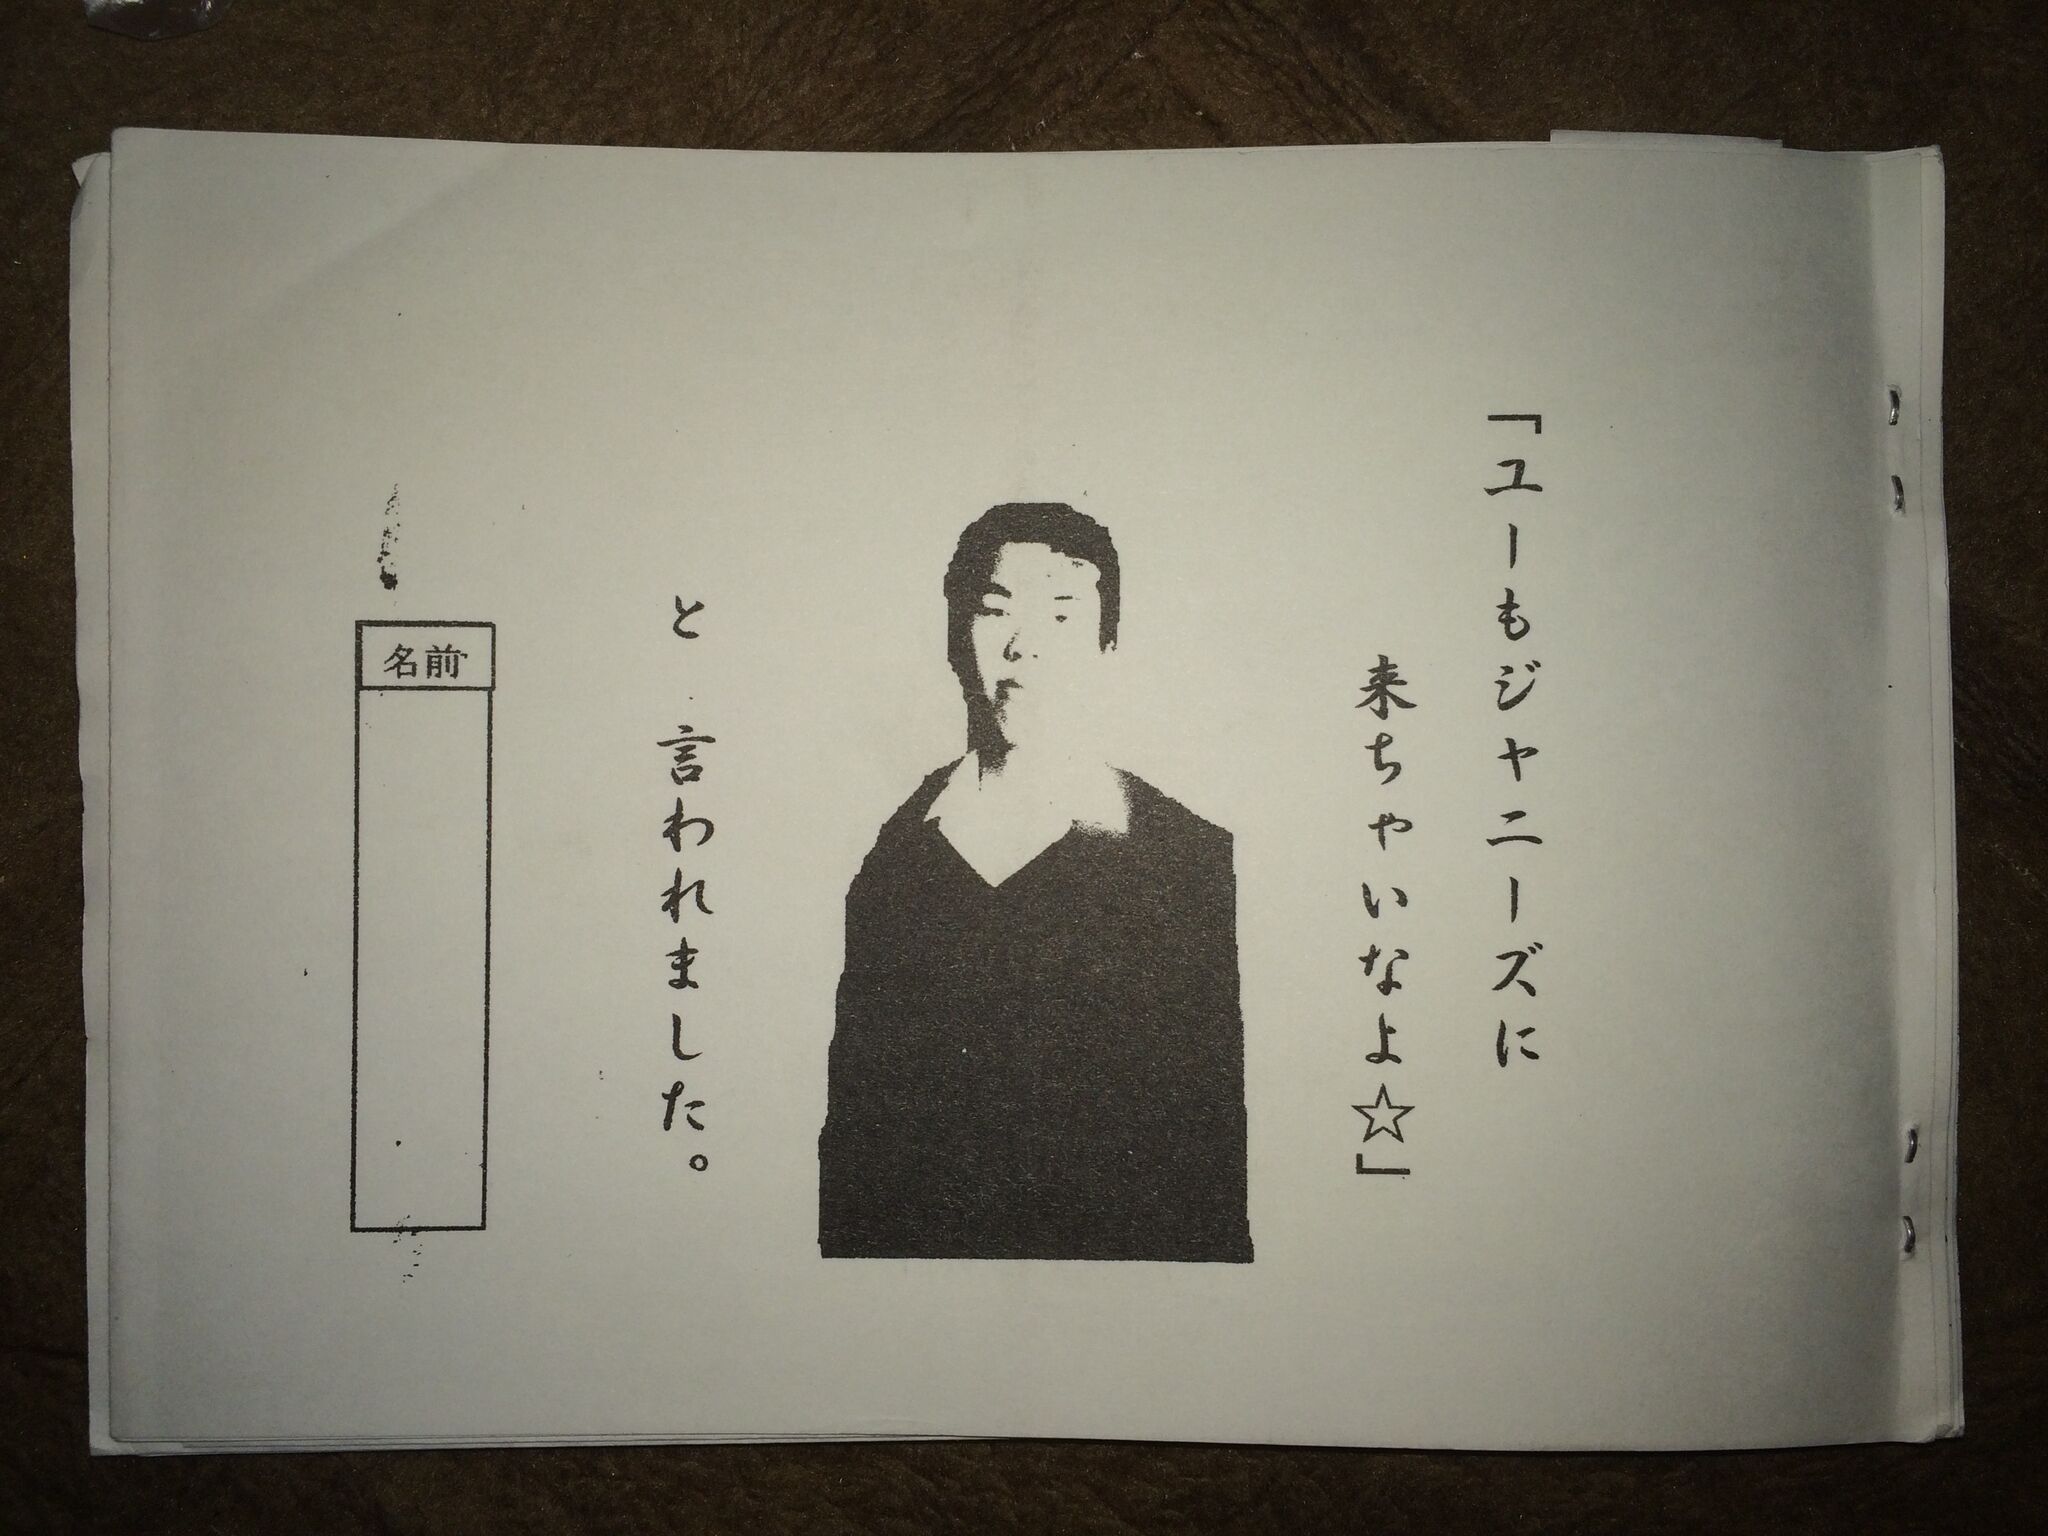 「ユーもジャニーズに
来ちゃいなよ☆」
と 言われました。
名前